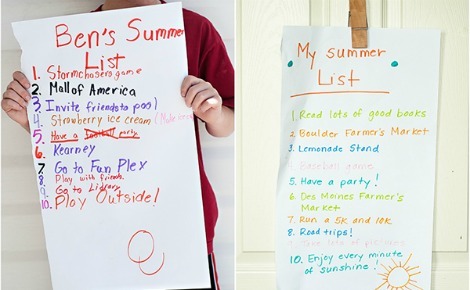 Ben's Summer
List
1. Stormchasers game
2. Mall of America
3. Invite friends to pool
4. Strawberry ice cream (Make
5. Have a football party
6. Kearney
7. Go to Fun Plex
8. Play with friends
9. Go to Library
10. Play Outside!
My summer
List
1. Read lots of good books
2. Boulder Farmer's Market
3. Lemonade Stand
4. Baseball game
5. Have a party!
6. Des Moines Farmer's
Market
7. Run a 5K and 10K
8. Road trips!
9. Take lots of pictures
10. Enjoy every minute
of sunshine!